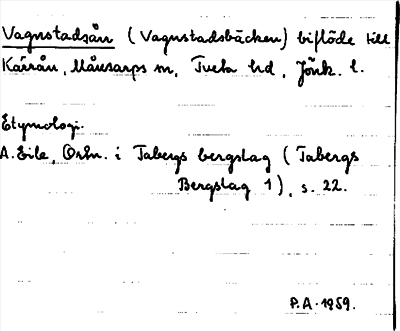 Vagnstadsån (Vagnstadsbäcken) biflöde till
Kärrån, Månsarps sn, Tveta hd, Jönk. l.
Etymologi.
A. Eile, Ortn. i Tabergs bergslag (Tabergs
Bergslag 1), s. 22.
P.A. 1959.